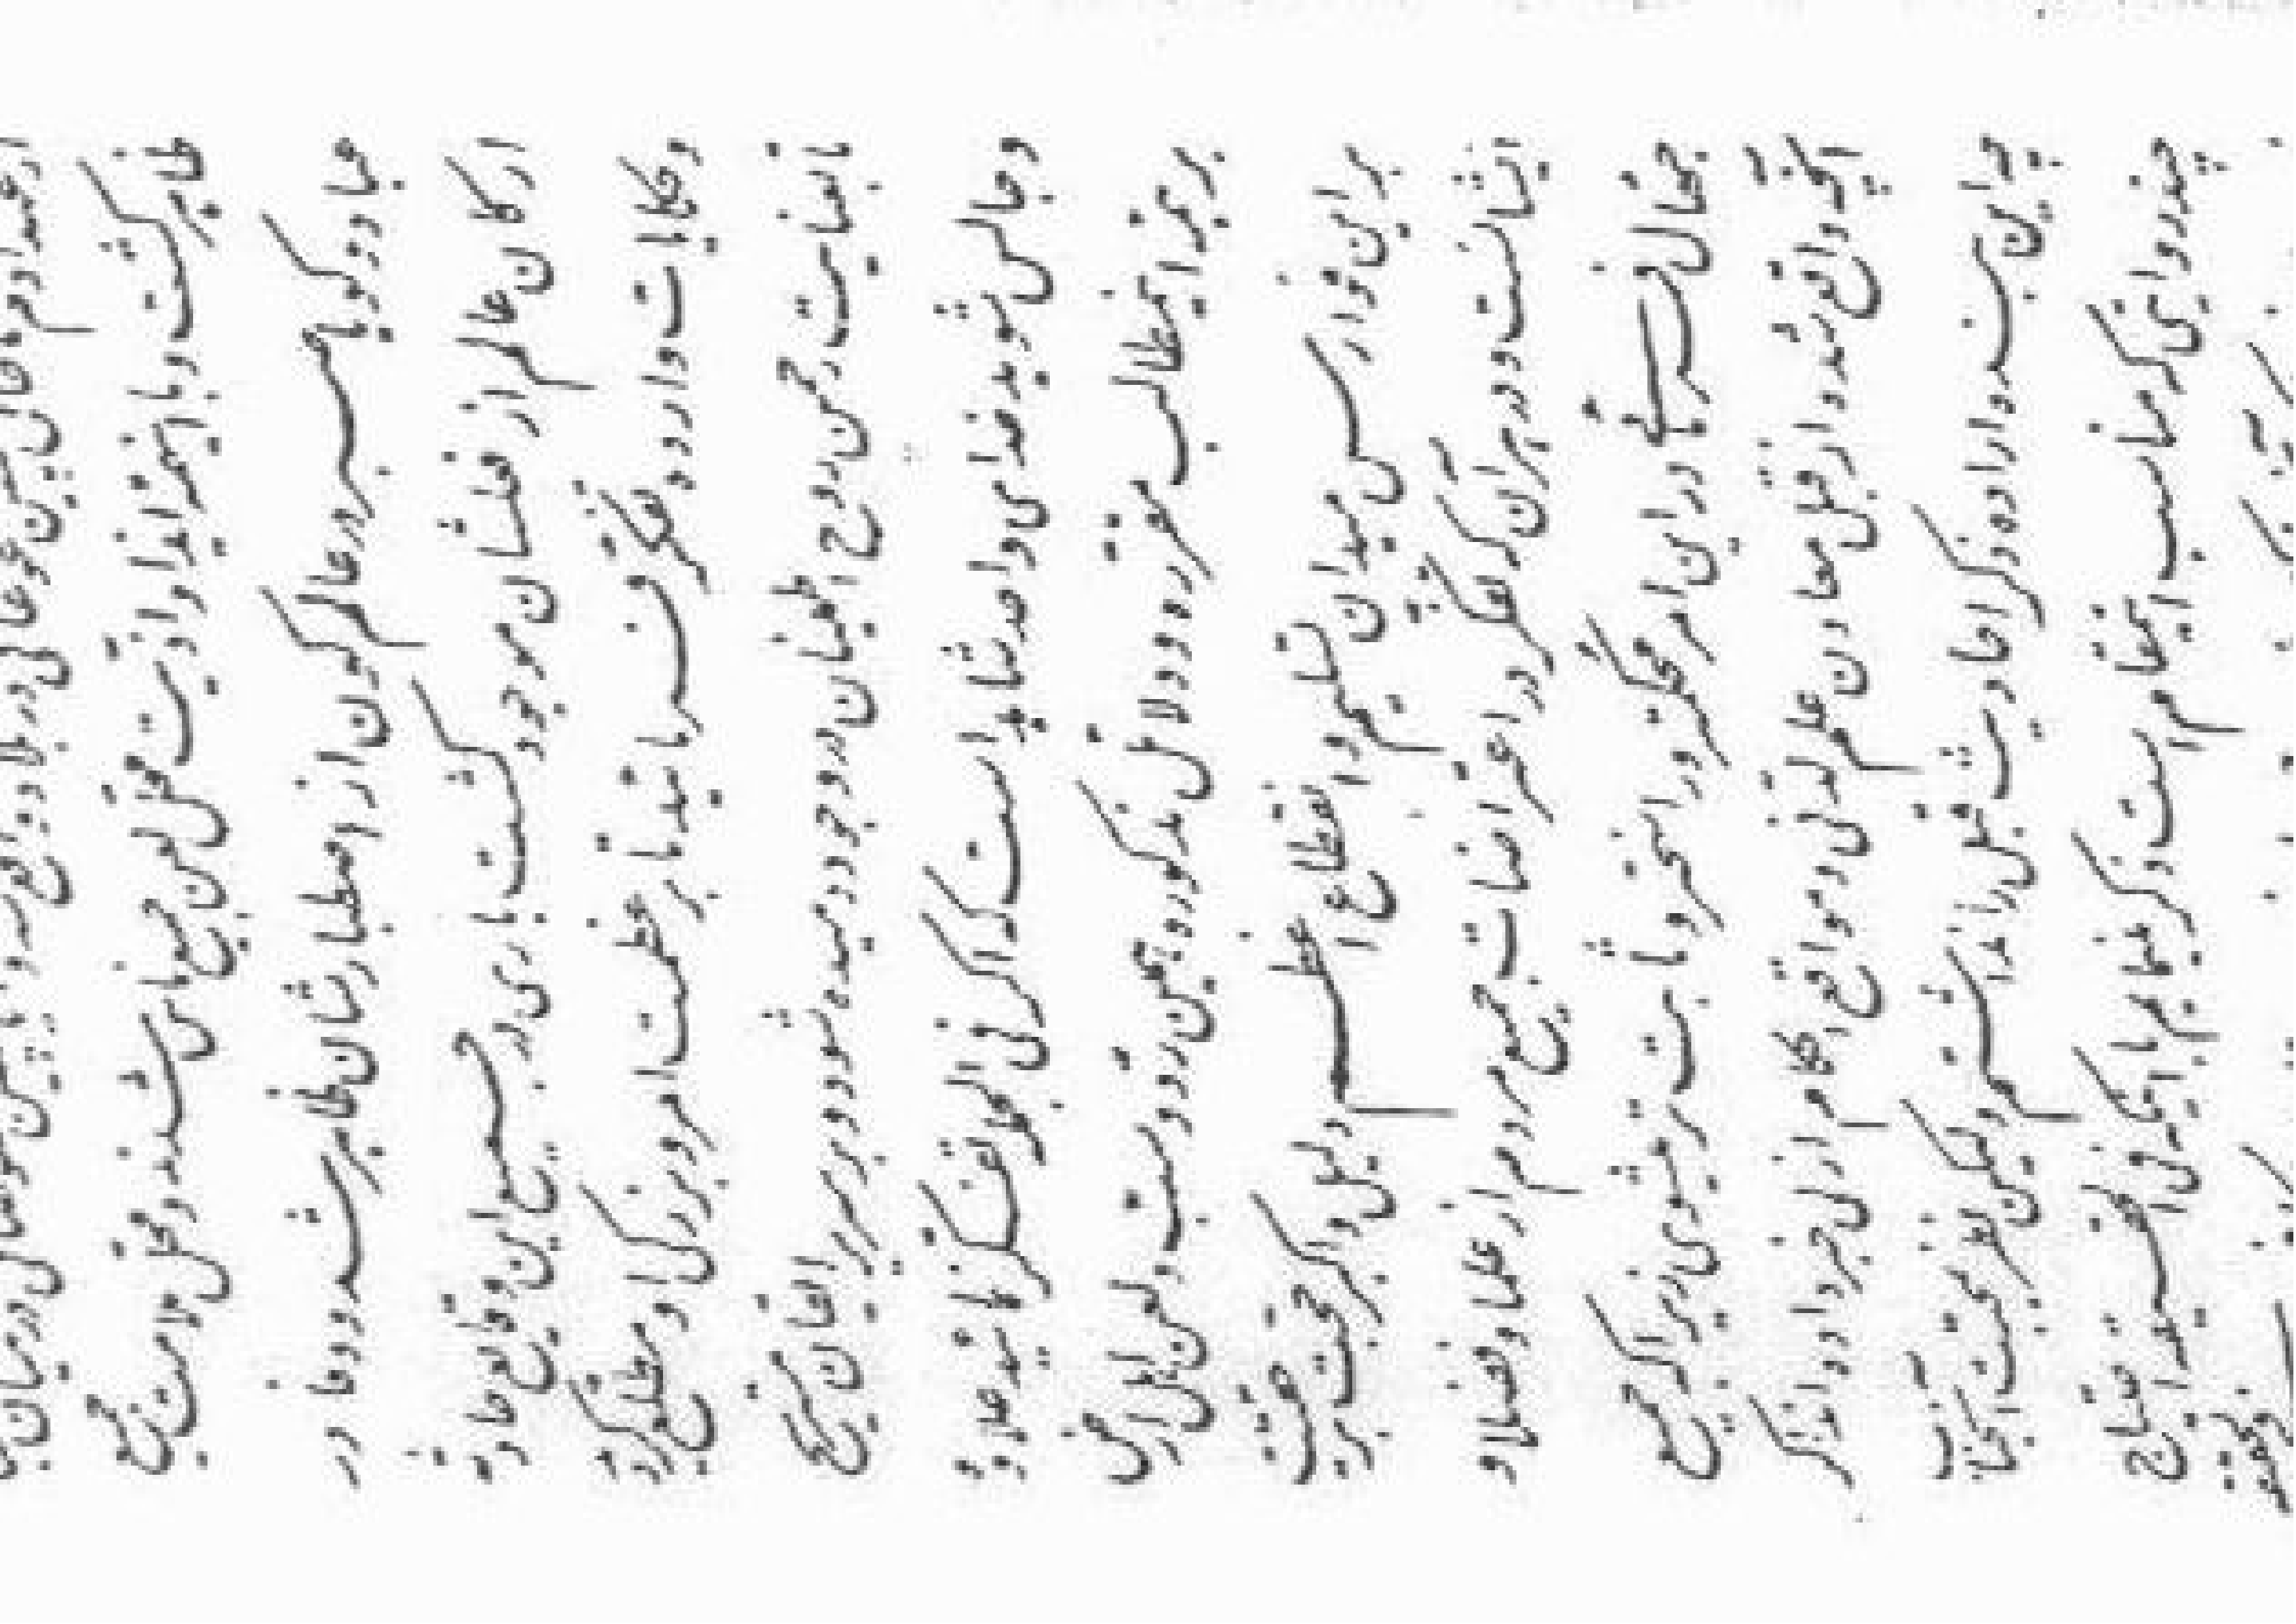 ظاهر گشت و با اینهمه ایذا و اذیت محل لعن جمیع ناس شدند و محل ملامت جمیع
عباد و گویا صبر در عالم کون از اصطبارشان ظاهر شد و وفا در
ارکان عالم از فعلشان موجود گشت باری در جمیع این وقایع حادثه
و حکایات وارده تفکر فرمائید تا بر عظمت امر و بزرگی او مطلع گردید
تا بعنایت رحمن روح اطمینان در وجود دمیده شود و بر سریر ایقان مستریح
و جالس شوید خدای واحد شاهد است که اگر فی الجمله تفکر نمائید علاوه
بر همه این مطالب مقرره و دلائل مذکوره همین رد و سب و لعن اهل ارض
بر این فوارس میدان تسلیم و انقطاع اعظم دلیل و اکبر حجت بر حقیت
ایشانست و در هر آن که تفکر در اعتراضات جمیع مردم از علما و فضلا و
جهال فرمائی در این امر محکمتر و راسختر و ثابت تر میشوی زیرا که جمیع
آنچه واقع شده از قبل معادن علم لدنی و مواقع احکام ازلی خبر داده اند اگر
چه این بنده اراده ذکر احادیث قبل را نداشتم ولیکن نظر بمحبت آنجناب
چند روایتی که مناسب اینمقام است ذکر مینمایم